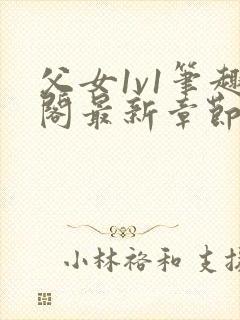 父女1v1筆趣
閣最新章節
小林裕和 支援